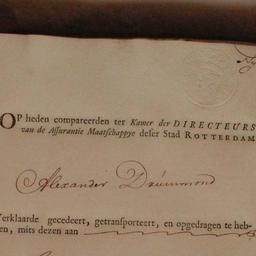 OP heden compareerden ter Kamer der DIRECTEURS
van de Assurantie Maatschappye deser Stad ROTTERDAM
Alexander Drummond
Verklaarde gecedeert, getransporteert, en opgedragen te heb-
en, mits dezen aan